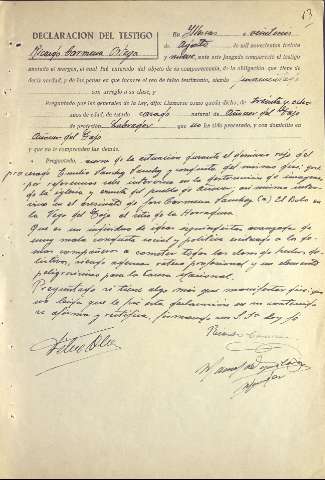 13
DECLARACION DEL TESTIGO
Ricardo Carmena Ortega
En Illescas a veintiuno
de Agosto de mil novecientos treinta
y nueve, ante este Juzgado compareció el testigo
anotado al margen, el cual fué enterado del objeto de su comparecencia, de la obligación que tiene de
decir verdad, y de las penas en que incurre el reo de falso testimonio, siendo juramentado
con arreglo a su clase, y
Preguntado por las generales de la Ley, dijo: Llamarse como queda dicho, de treinta y ocho
años de edad, de estado casado natural de Añover del Tajo
de profesión Labrador que no ha sido procesado, y con domicilio en
Añover del Tajo
y que no le comprenden las demás.
Preguntado, acerca de la actuación durante el dominio rojo del
procesado Emilio Sánchez Sánchez y manifiesta del mismo dice: que
por referencias sabe intervino en la destrucción de imágenes
de la iglesia y ermita del pueblo de Añover, así mismo intervino
en el asesinato de José Carmena Sánchez (a) El Bolo en
la Vega del Tajo al sitio de la
Que es un individuo de ideas izquierdistas avanzadas de
muy mala conducta social y política
compañeros a cometer toda clase de hechos delictivos,
siendo además ratero profesional y un elemento
peligrosísimo para la Causa Nacional.
Preguntado si tiene algo más que manifestar dice: que
no leída que le fué esta declaración en su contenido
se afirma y ratifica, firmando con S.Sª doy fe
Ricardo Carmena
Manuel de